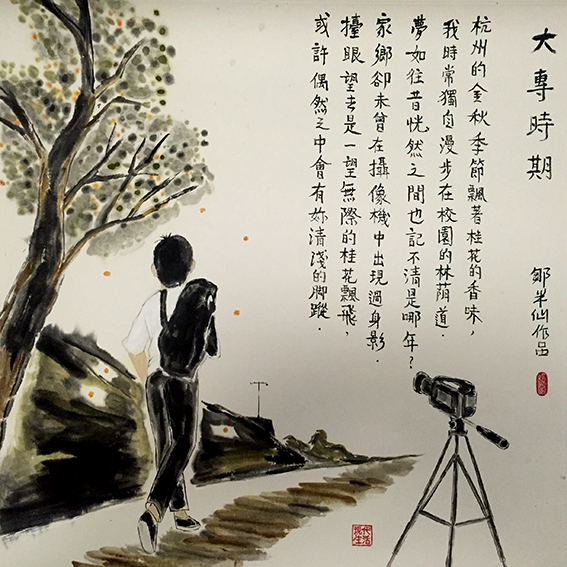 大專時期
鄒半仙作品
杭州的金秋季節飄著桂花的香味，
我時常獨自漫步在校園的林荫道．
夢如往昔恍然之間也記不清是哪年？
家鄉卻未曾在攝像機中出現過身影．
擡眼望去是一望無際的桂花飄飛，
或許偶然之中會有妳清淺的脚蹤．
现代
生活